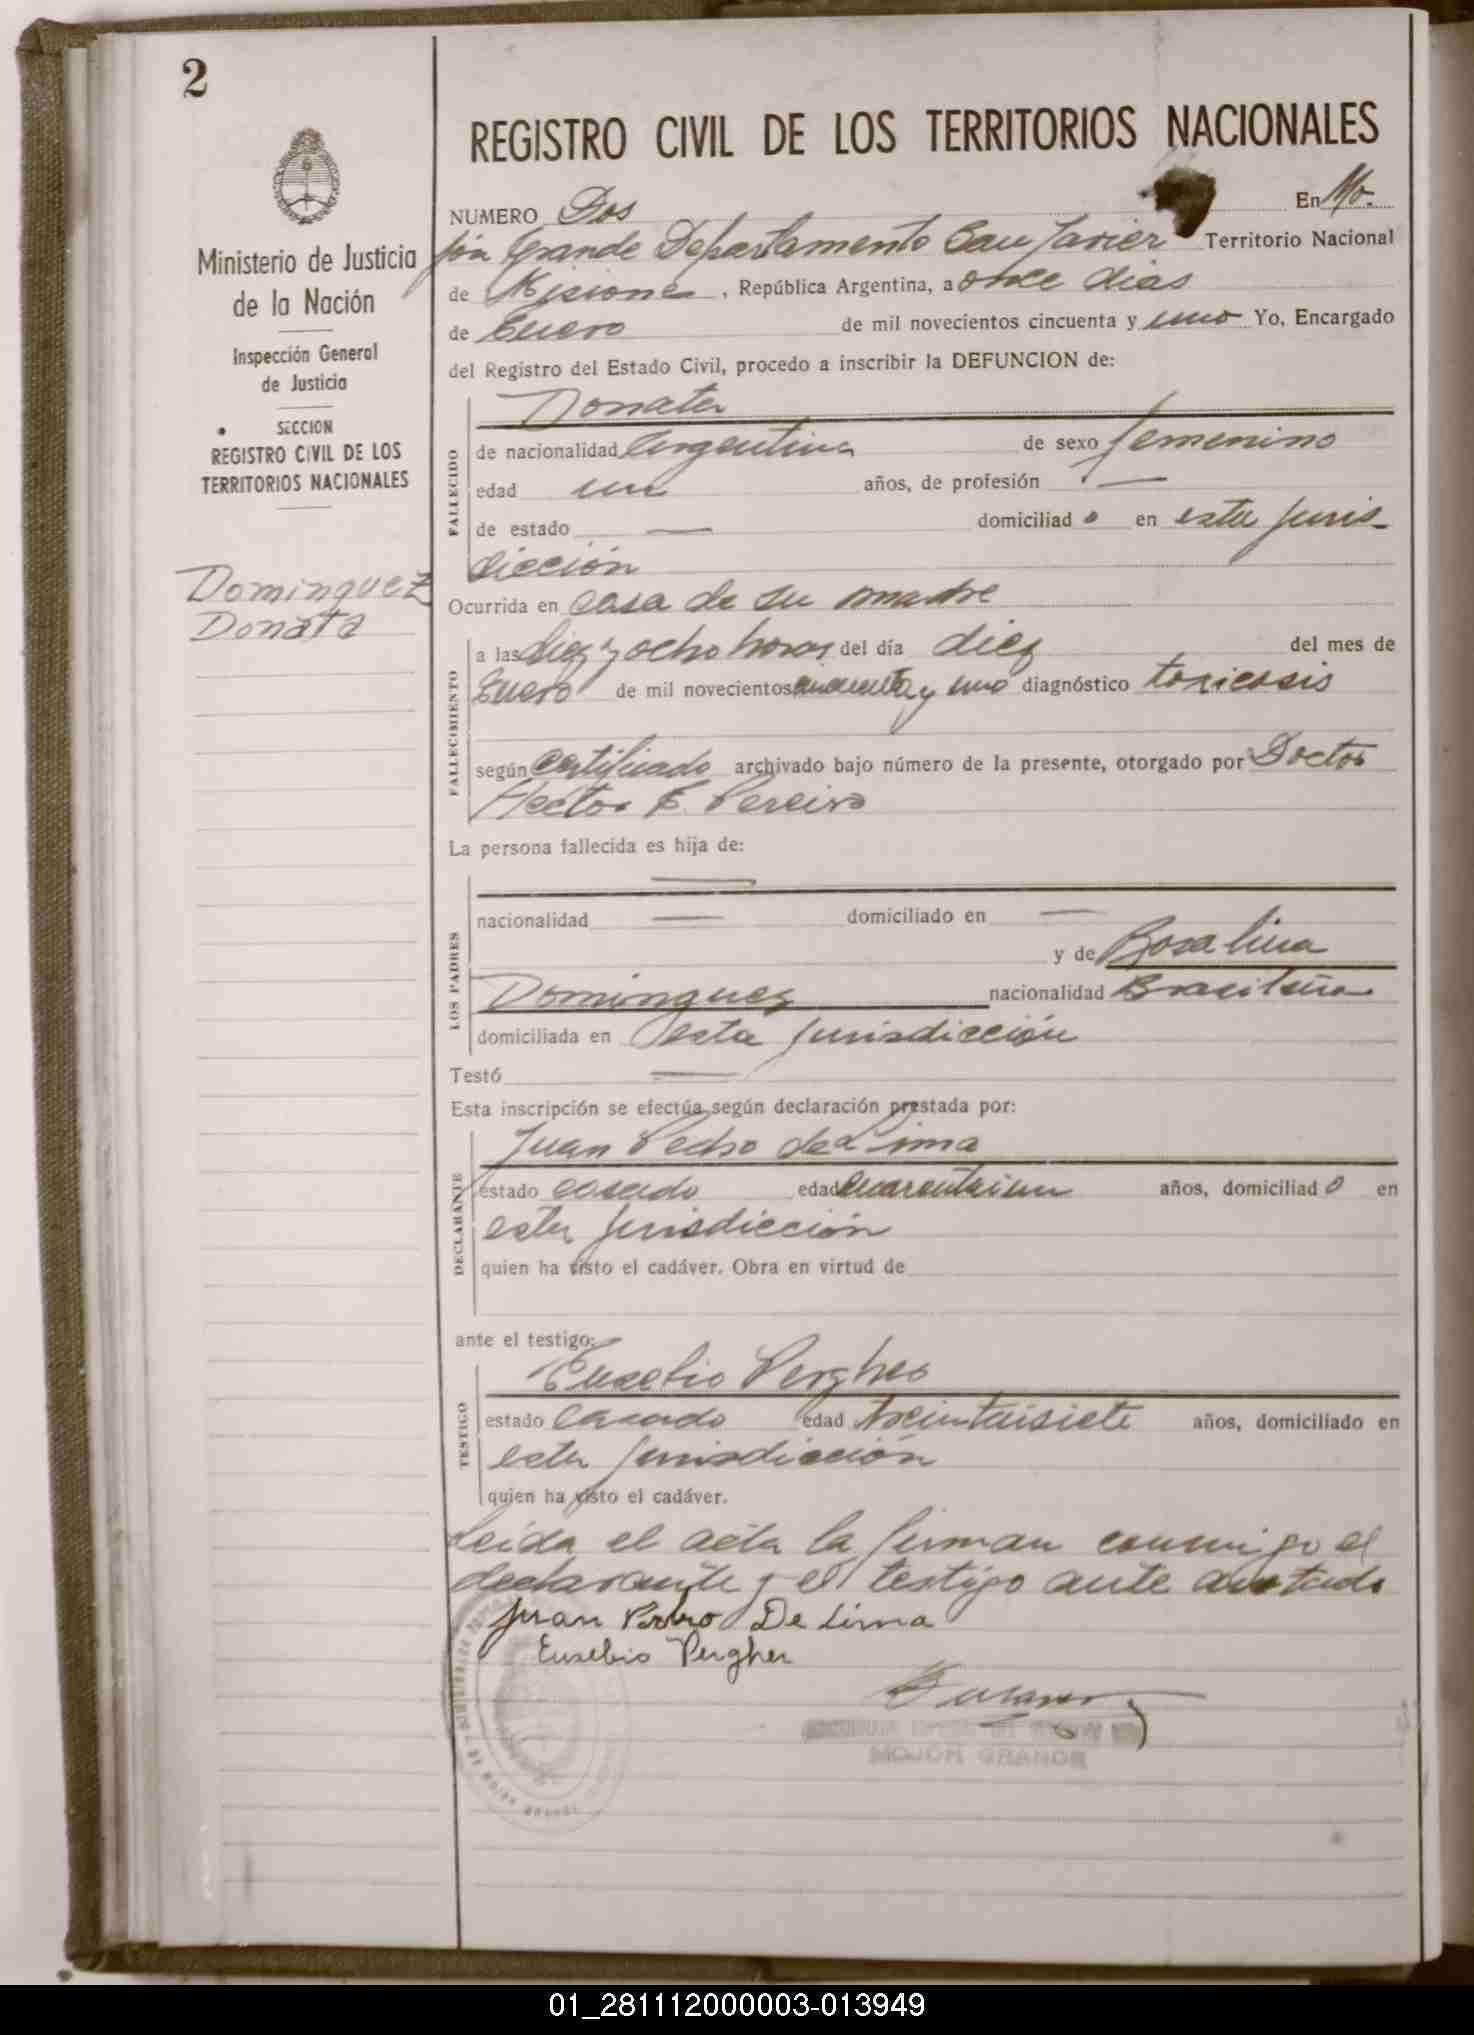 2
Ministerio de Justicia
de la Nación
Inspección General
de Justicia
SECCION
REGISTRO CIVIL DE LOS
TERRITORIOS NACIONALES
Dominguez
Donata
REGISTRO CIVIL DE LOS TERRITORIOS NACIONALES
NUMERO Dos En Mo-
jón Grande Departamento San Javier Territorio Nacional
de Misiones, República Argentina, a once dias
de Enero de mil novecientos cincuenta y uno Yo, Encargado
del Registro del Estado Civil, procedo a inscribir la DEFUNCION de:
FALLECIDO
Donata
de nacionalidad Argentina de sexo femenino
edad un años, de profesión —
de estado — domiciliad o en esta juris-
dicción
Ocurrida en casa de su madre
FALLECIMIENTO
a las diez y ocho horas del día diez del mes de
Enero de mil novecientos cincuenta y uno diagnóstico toxicosis
según certificado archivado bajo número de la presente, otorgado por Doctor
Hector E. Pereiro
La persona fallecida es hija de:
LOS PADRES
—
nacionalidad — domiciliado en —
y de Rosalina
Dominguez nacionalidad Brasileña
domiciliada en esta jurisdicción
Testó —
Esta inscripción se efectúa según declaración prestada por:
DECLARANTE
Juan Pedro de Lima
estado casado edad cuarentaiun años, domiciliad o en
esta jurisdicción
quien ha visto el cadáver. Obra en virtud de
ante el testigo:
TESTIGO
Eusebio Pergher
estado casado edad treintaisiete años, domiciliado en
esta jurisdicción
quien ha visto el cadáver.
Leida el acta la firman conmigo el
declarante y el testigo ante anotado
Juan Pedro De Lima
Eusebio Pergher
MOJON GRANDE
01_281112000003-013949